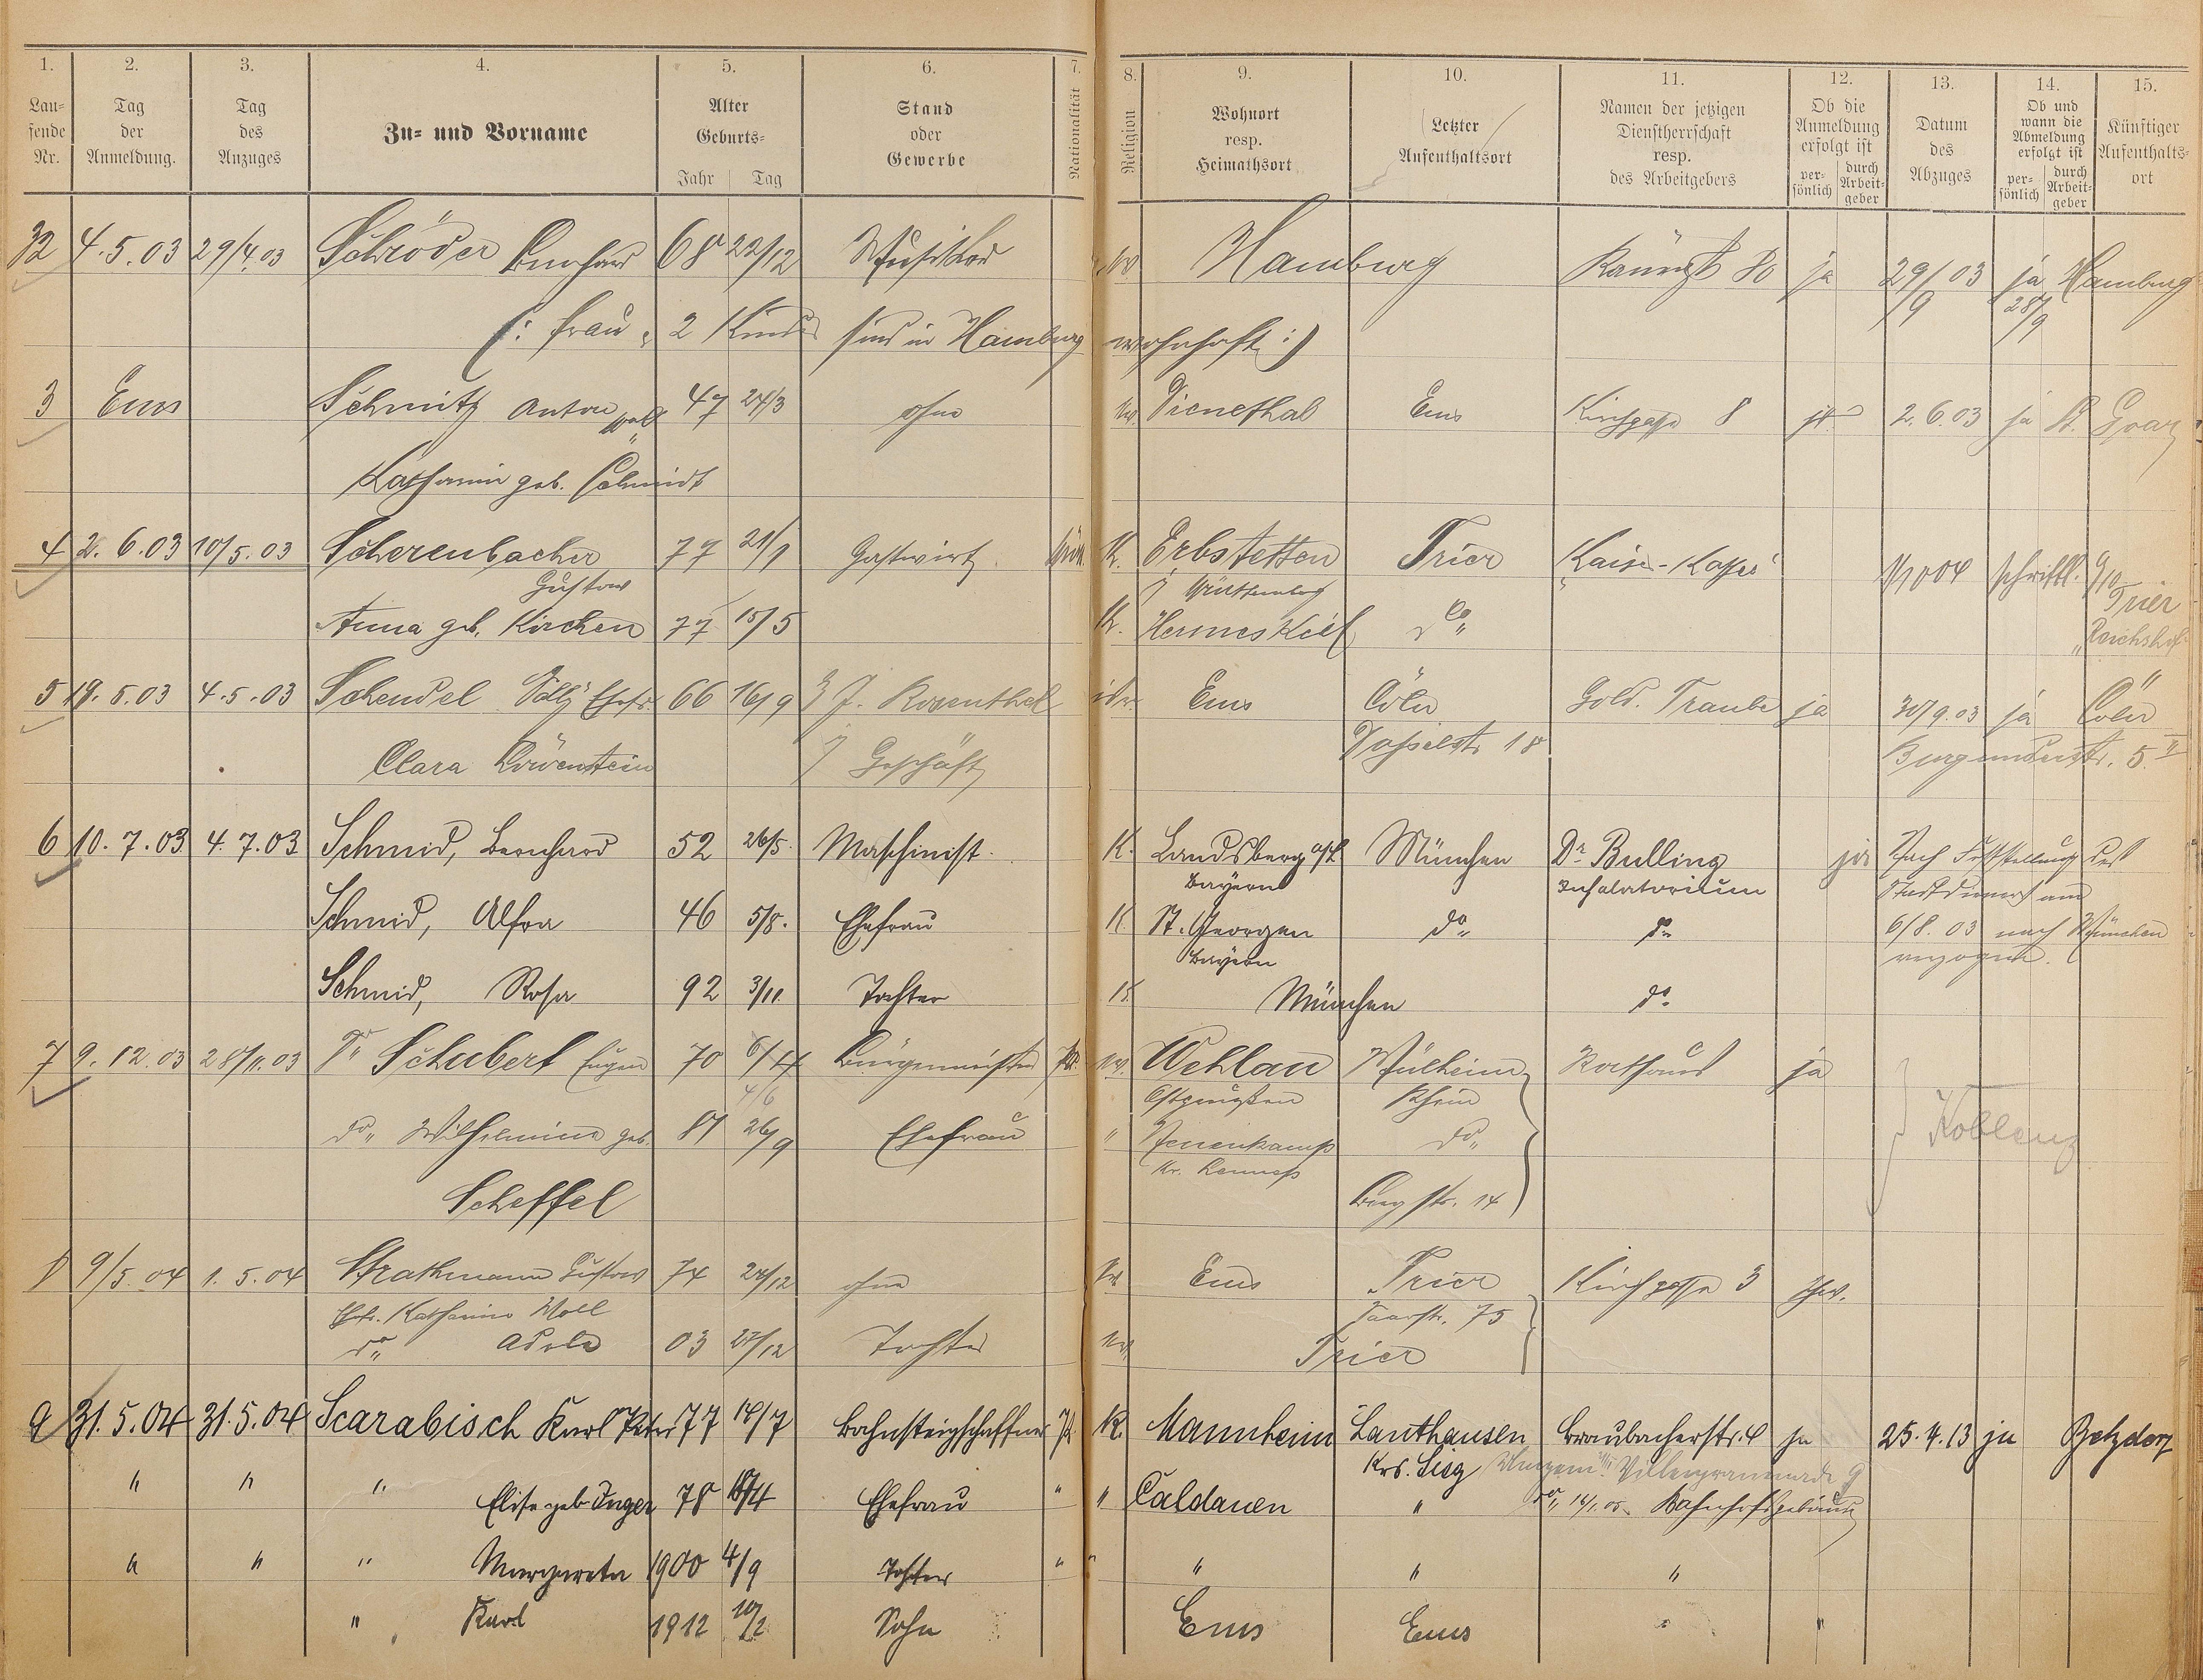 1. 2. 3. 4. 5. 6. 7. 8. 9. 10. 11. 12. 13. 14. 15.
Laufende Nr. | Tag der Anmeldung. | Tag des Anzuges | Zu- und Vorname | Alter Geburts- Jahr Tag | Stand oder Gewerbe | Nationalität | Religion | Wohnort resp. Heimathsort | Letzter Aufenthaltsort | Namen der jetzigen Dienstherrschaft resp. des Arbeitgebers | Ob die Anmeldung erfolgt ist persönlich durch Arbeitgeber | Datum des Abzuges | Ob und wann die Abmeldung erfolgt ist persönlich durch Arbeitgeber | Künftiger Aufenthaltsort
32 4.5.03 29/4.03 Schröder Bernhard 68 22/12 Musiker Hamburg 80 ja 29/9 03 ja 28/9 Hamburg
(: Frau u. 2 Kinder sind in Hamburg wohnhaft :)
3 Ems Schmitz Anton 47 24/3 ohne Dienethal Ems Kirchgasse 8 2.6.03 ja St. Goar
Katharina geb. Schmidt
4 2.6.03 10/5.03 Scherenbacher 77 21/1 Gastwirt K. Erbstetten Trier Kaiser-Kaffee 1/10 04 schriftl. 9/10 Trier
Gustav Württemberg
Anna geb. Kirchen 77 15/5 K. Hermeskeil do „Reichshof"
5 19.5.03 4.5.03 Schendel Sally Ehefr. 66 16/9 J. Rosenthal isr. Ems Cöln Gold. Traube ja 30/9.03 ja Cöln
Clara Löwenstein Geschäft 18 Burgunderstr. 5 II
6 10.7.03 4.7.03 Schmid, Bernhard 52 26/5. Maschinist. K. Landsberg a/L München Dr Bulling ja Nach Feststellung des
Bayern Inhalatorium Stadtdieners am
Schmid, Afra 46 5/8. Ehefrau K. St. Georgen do do 6/8.03 nach München
Bayern verzogen.
Schmid, Rosa 92 3/11. Tochter K. München do
7 9.12.03 28/11.03 Dr Schubert Eugen 70 6/4 Bürgermeister Pr. ev. Wehlau Mülheim Rathaus ja
4/6 Ostpreußen Rhein
do Wilhelmine geb. 81 26/9 Ehefrau " Nenenkamp do Koblenz
Kr. Lennep
Scheffel Burgstr. 14
8 9/5.04 1.5.04 Strathmann Gustav 74 24/12 ohne ev. Ems Trier Kirchgasse 3
Ehefr. Katharina Moll Saarstr. 75
do Adele 03 27/12 Tochter ev. Trier
9 31.5.04 31.5.04 Scarabisch Karl Peter 77 14/7 Bahnsteigschaffner Pr. K. Mannheim Lauthausen Braubacherstr. 4 ja 25.4.13 ja Betzdorf
Krs. Sieg Villenpromenade 9
" " " Elise geb. Inger 78 18/4 Ehefrau " " Caldauen " do 16/1.05 Bahnhofsgebäude
" " " Margareta 1900 4/9 Tochter " " " " "
" Karl 1912 10/2 Sohn Ems Ems " "